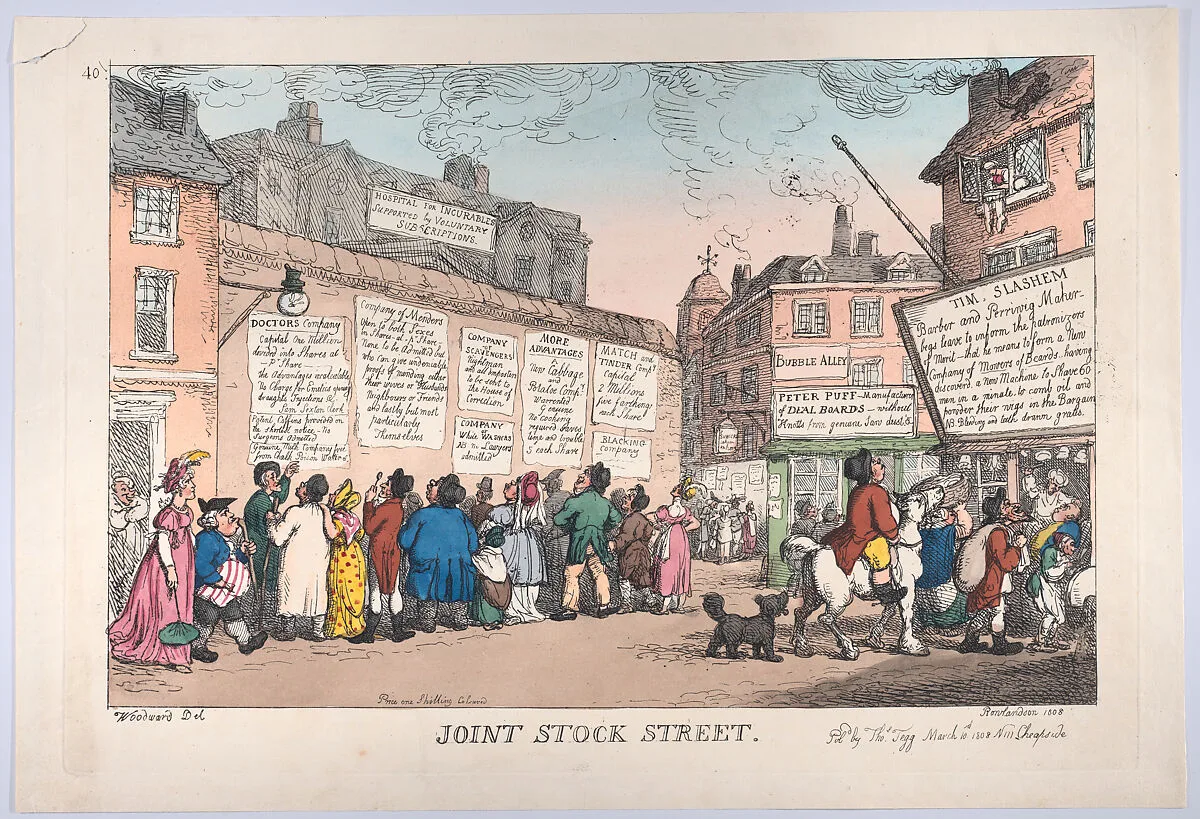 40
HOSPITAL FOR INCURABLES
Supported by VOLUNTARY
SUBSCRIPTIONS.
DOCTORS Company
Capital One Million
divided into Shares at
Pr Share
the Advantages incalculable
No Charge for Emetics
draughts Injections &c
Sam Sexton Clerk
Patent Coffins provided on
the shortest notice - No
Surgeons Admitted
Genuine Milk Company free
from Chalk Poison Water &c
Company of Menders
Open to both Sexes
in Shares at Pr Share
None to be Admitted but
who can give undeniable
proofs of mending either
their wives or Husbands
Neighbours or Friends
and lastly but most
particularly
Themselves
COMPANY
of
SCAVENGERS
Nightmen
and all Imposters
to be sent to
the House of
Correction
COMPANY
of
White Washers
NB no Lawyers
admitted
MORE
ADVANTAGES
A
New Cabbage
and
Potatoe Compy
Warranted
Genuine
No Cooking
required saves
time and trouble
5 each Share
MATCH and
TINDER Compy
Capital
2 Millions
five farthings
each Share
BLACKING
Company
BUBBLE ALLEY
PETER PUFF - Manufacturer
of DEAL BOARDS - without
Knotts from genuine Saw dust &c
TIM. SLASHEM
Barber and Perriwig Maker -
begs leave to inform the patronizers
of Merit - that he means to form a New
Company of Mowers of Beards - having
discovered a New Machine to Shave 60
men in a minute. to comb oil and
powder their wigs in the Bargain
NB Bleeding and teeth drawn gratis.
Price one Shilling Coloured
Woodward Del
Rowlandson 1808
JOINT STOCK STREET.
Pubd by Thos Tegg March 10th 1808 N111 Cheapside